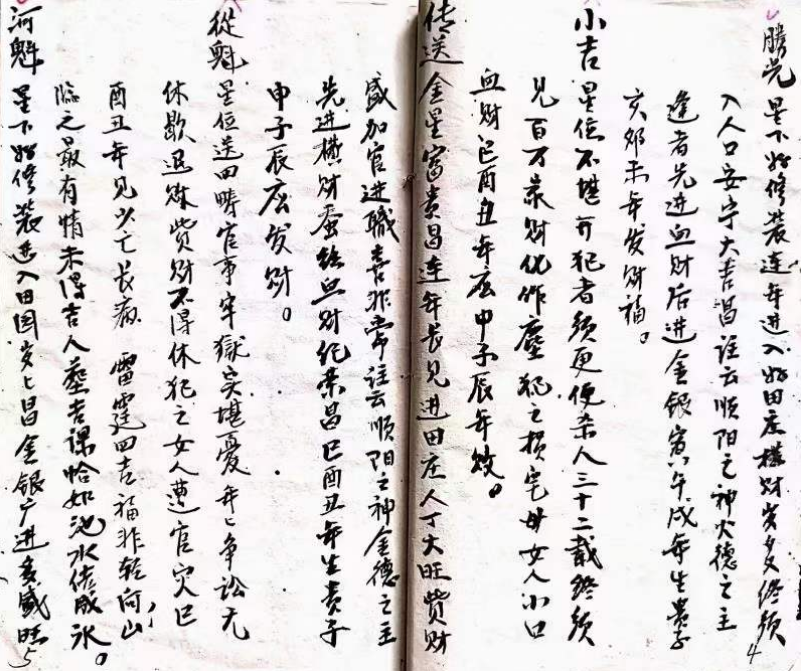 勝光星下好修裝連年進入好田庄橫财岁多终须
入人口安宁大吉昌注云顺阳之神火德之主
逢者先进血财后进金銀寅午戌年生贵子
亥卯未年发财福。
小吉星位不堪可犯者须更便杀人三十二载终须
见百万家财化作塵犯之损宅母女人小口
血财巳酉丑年应甲子辰年效。
4
传送金星富贵昌连年长见进田庄人丁大旺赀财
盛加官进職喜非常注云顺阳之神金德之主
先进横财蚕丝血财纪荣昌巳酉丑年生贵子
申子辰应发财。
從魁星位送田疇官事牢獄实堪憂年々争讼无
休歇退财赀财不得休犯之女人遭官灾巳
酉丑年见少亡长病 雷霆四吉福非轻向山
临之最有情未得吉人塟吉课恰如池水结成冰。
河魁星下好修装进入田园岁々昌金银广进多盛旺
5